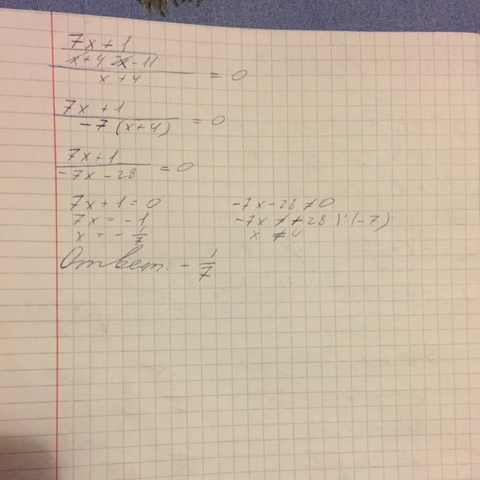 7x+1
x+4 x-11
x+4 = 0
7x+1
-7(x+4) = 0
7x+1
-7x-28 = 0
7x+1=0 -7x-28≠0
7x=-1 -7x≠+28 |:(-7)
x=-1/7 x≠4
Ответ: -1/7